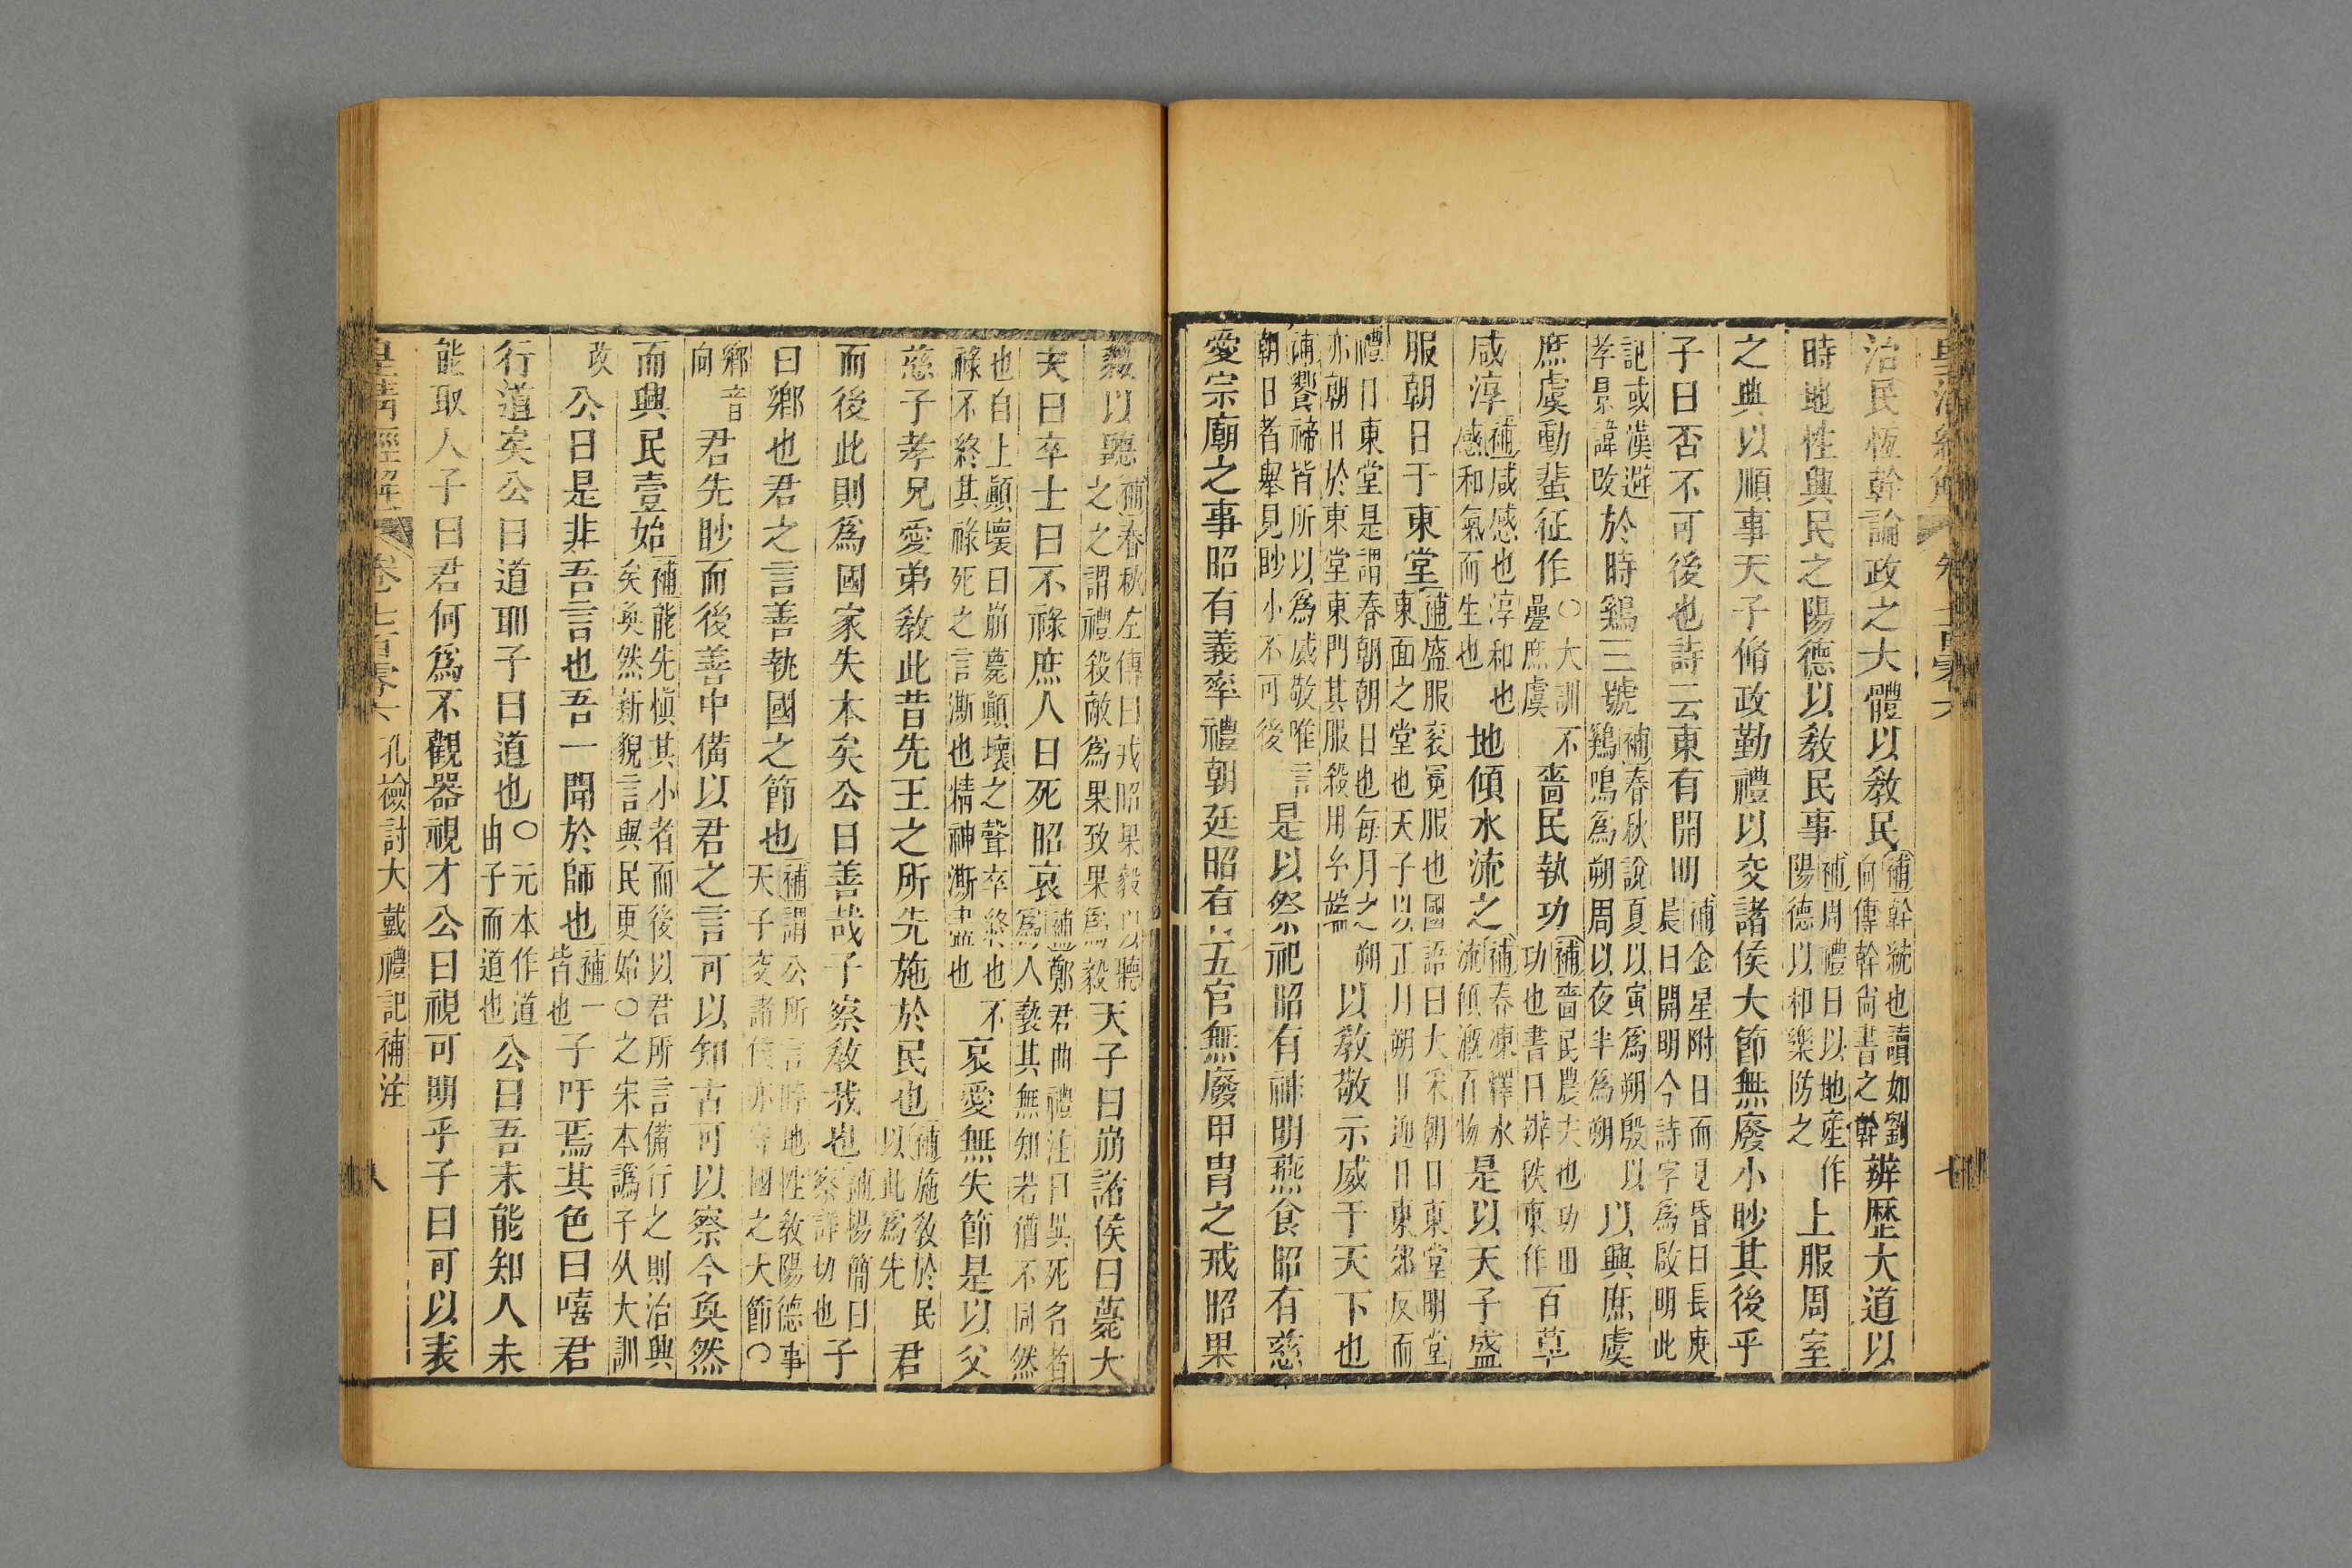 治民恆幹論政之大體以敎民補幹統也讀如劉向傳幹尚書之幹辨歷大道以
時地性興民之陽德以敎民事補周禮曰以地產作陽德以和樂防之上服周室
之典以順事天子脩政勤禮以交諸侯大節無廢小眇其後乎
子曰否不可後也詩云東有開明補金星附日而見昏曰長庚晨曰開明今詩字爲啟明此
記或漢避孝景諱改於時鷄三號補春秋說夏以寅爲朔殷以鷄鳴爲朔周以夜半爲朔以興庶虞
庶虞動蜚征作○大訓不疊庶虞嗇民執功補嗇民農夫也功田功也書曰辯秩東作百草
咸淳補咸感也淳和也感和氣而生也地傾水流之補春凍釋水流傾漑百物是以天子盛
服朝日于東堂補盛服袞冕服也國語曰大采朝日東堂明堂東面之堂也天子以正月朔日迎日東郊反而
禮日東堂是謂春朝朝日也每月之朔亦朝日於東堂東門其服殺用玄端以敎敬示威于天下也
補饗禘皆所以爲威敬唯言朝日者舉見眇小不可後是以祭祀昭有神明燕食昭有慈
愛宗廟之事昭有義率禮朝廷昭有五官無廢甲胄之戒昭果
毅以聽補春秋左傳曰戎昭果毅以聽之之謂禮殺敵爲果致果爲毅天子曰崩諸侯曰薨大
夫曰卒士曰不祿庶人曰死昭哀補鄭君曲禮注曰異死名者爲人褻其無知若猶不同然
也自上顚壞曰崩薨顚壞之聲卒終也不祿不終其祿死之言澌也精神澌盡也哀愛無失節是以父
慈子孝兄愛弟敎此昔先王之所先施於民也補施敎於民以此爲先君
而後此則爲國家失本矣公曰善哉子察敎我也補楊簡曰察詳切也子
曰鄉也君之言善執國之節也補謂公所言時地性敎陽德事天子交諸侯亦守國之大節○
鄉音向君先眇而後善中備以君之言可以知古可以察今奐然
而興民壹始補能先愼其小者而後以君所言備行之則治興矣奐然新貌言與民更始○之宋本譌子从大訓
改公曰是非吾言也吾一聞於師也補一皆也子吁焉其色曰嘻君
行道矣公曰道耶子曰道也○元本作道由子而道也公曰吾未能知人未
能取人子曰君何爲不觀器視才公曰視可明乎子曰可以表
皇淸經解 卷七百零六 孔檢討大戴禮記補注 八